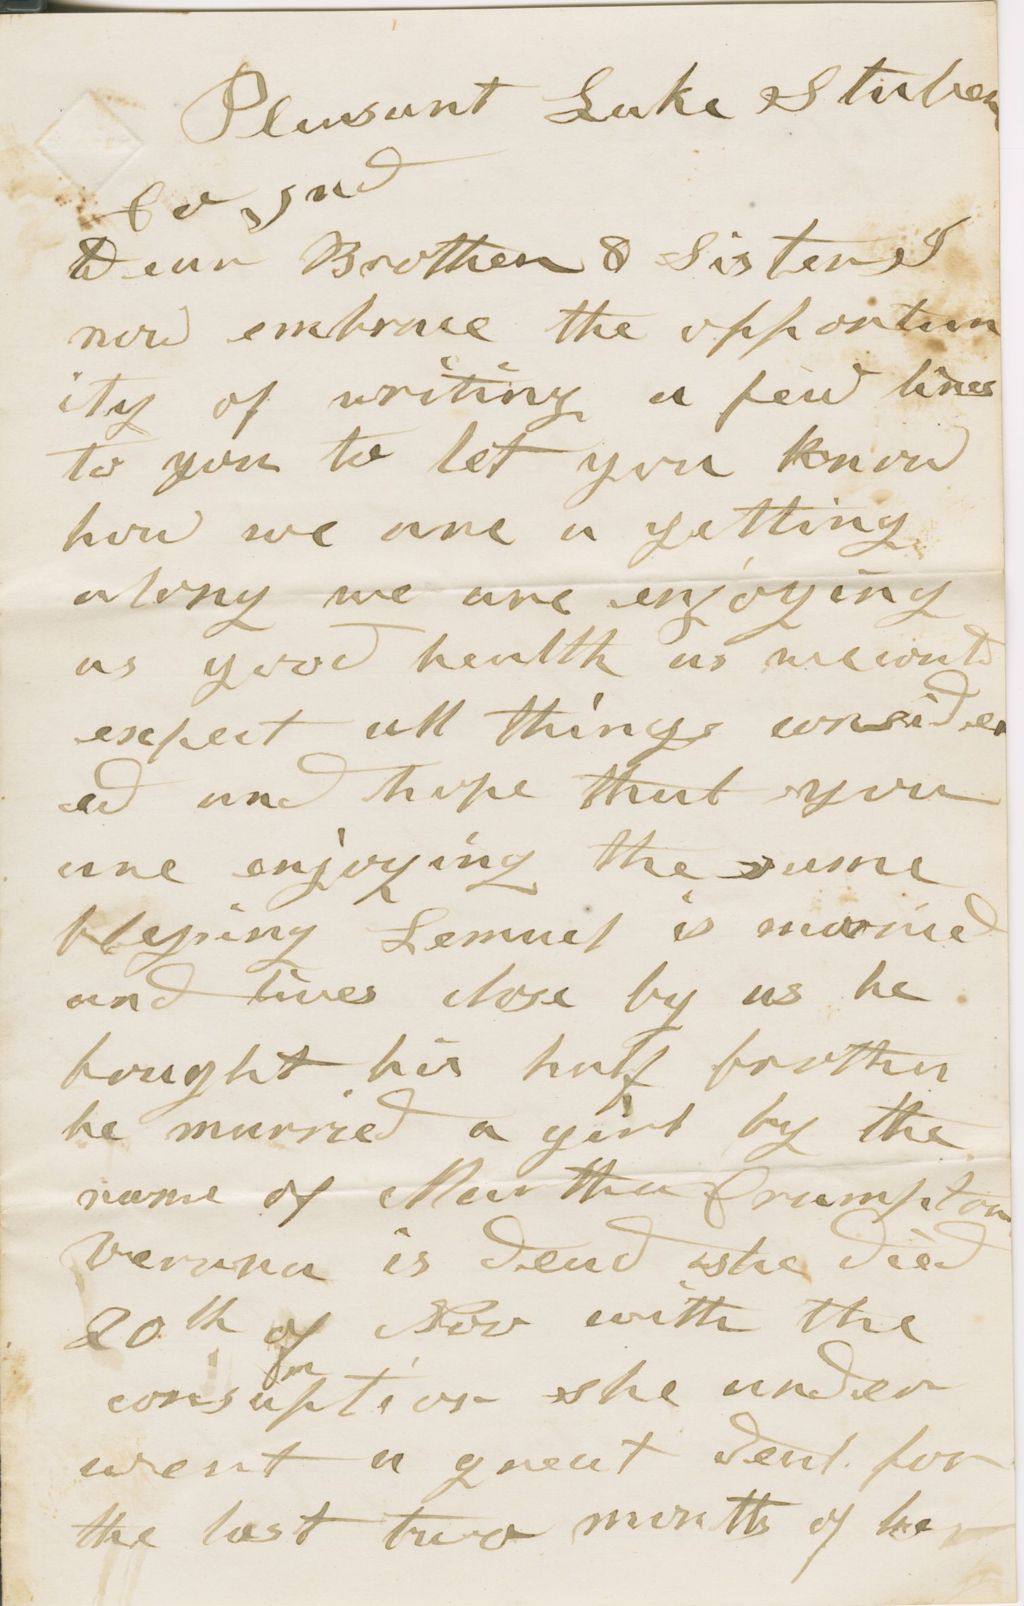 Pleasant Lake Stuben
Co Ind
Dear Brother & Sister I
now embrace the opportun
ity of writing a few lines
to you to let you know
how we are a getting
along we are enjoying
as good health as we could
expect all things consider
ed and hope that you
are enjoying the same
blessing Lemuel is married
and lives close by us he
bought his half brother
he married a girl by the
name of Martha Crumpton
Verana is dead she died
20th of Nov with the
consumption she under
went a great deal for
the last two months of her